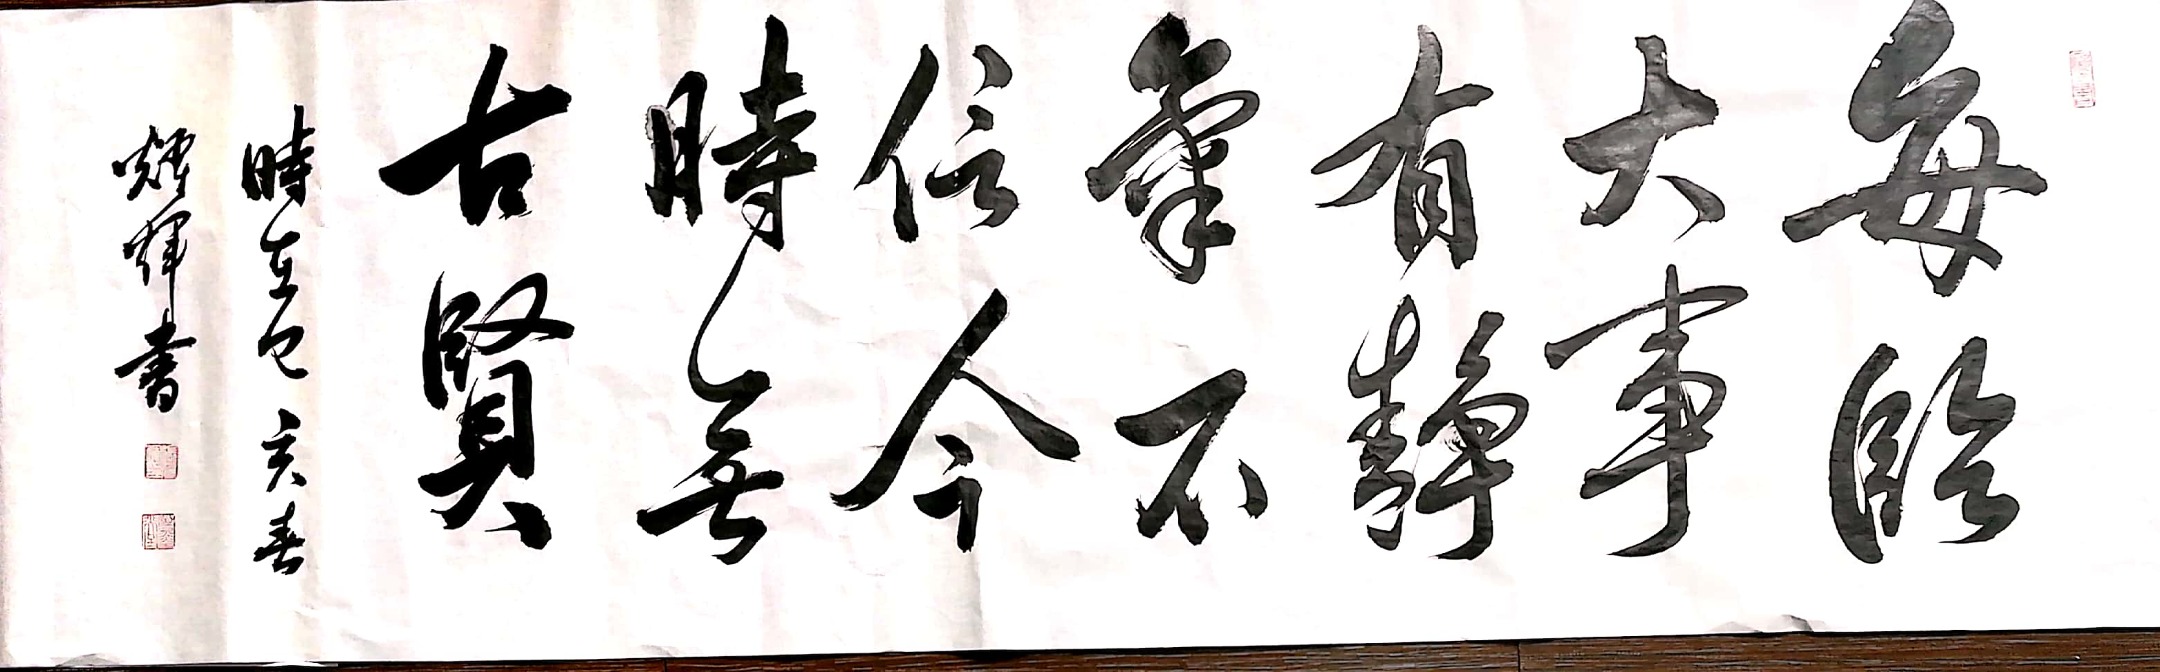 每臨
大事
有靜
氣不
信今
時無
古賢
時在己亥春
輝書